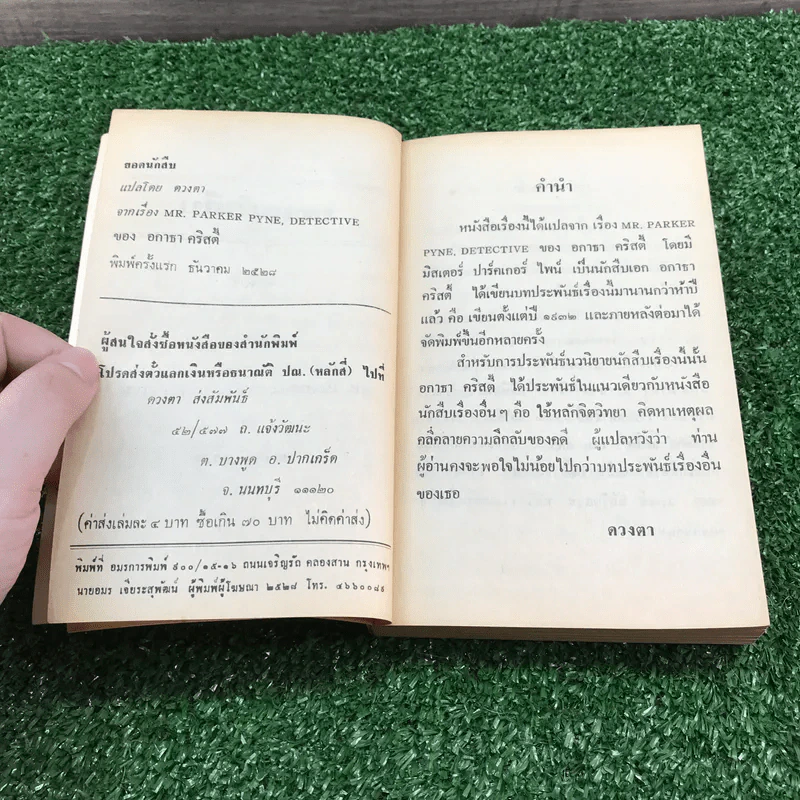 ยอดนักสืบ
แปลโดย ดวงตา
จากเรื่อง MR. PARKER PYNE, DETECTIVE
ของ อกาธา คริสตี้
พิมพ์ครั้งแรก ธันวาคม ๒๕๒๘
ผู้สนใจสั่งซื้อหนังสือของสำนักพิมพ์
โปรดส่งตั๋วแลกเงินหรือธนาณัติ ปณ. (หลักสี่) ไปที่
ดวงตา ส่งสัมพันธ์
๕๒/๕๗๗ ถ. แจ้งวัฒนะ
ต. บางพูด อ. ปากเกร็ด
จ. นนทบุรี ๑๑๑๒๐
(ค่าส่งเล่มละ ๔ บาท ซื้อเกิน ๗๐ บาท ไม่คิดค่าส่ง)
พิมพ์ที่ อมรการพิมพ์ ๙๐๐/๑๕-๑๖ ถนนเจริญรัถ คลองสาน กรุงเทพฯ
นายอมร เจียระสุพัฒน์ ผู้พิมพ์ผู้โฆษณา ๒๕๒๘ โทร. ๔๖๖๐๐๘๕
คำนำ
หนังสือเรื่องนี้ได้แปลจาก เรื่อง MR. PARKER
PYNE, DETECTIVE ของ อกาธา คริสตี้ โดยมี
มิสเตอร์ ปาร์คเกอร์ ไพน์ เป็นนักสืบเอก อกาธา
คริสตี้ ได้เขียนบทประพันธ์เรื่องนี้มานานกว่าห้าปี
แล้ว คือ เขียนตั้งแต่ปี ๑๙๓๒ และภายหลังต่อมาได้
จัดพิมพ์ขึ้นอีกหลายครั้ง
สำหรับการประพันธ์นวนิยายนักสืบเรื่องนี้นั้น
อกาธา คริสตี้ ได้ประพันธ์ในแนวเดียวกับหนังสือ
นักสืบเรื่องอื่นๆ คือ ใช้หลักจิตวิทยา คิดหาเหตุผล
คลี่คลายความลึกลับของคดี ผู้แปลหวังว่า ท่าน
ผู้อ่านคงจะพอใจไม่น้อยไปกว่าบทประพันธ์เรื่องอื่น
ของเธอ
ดวงตา